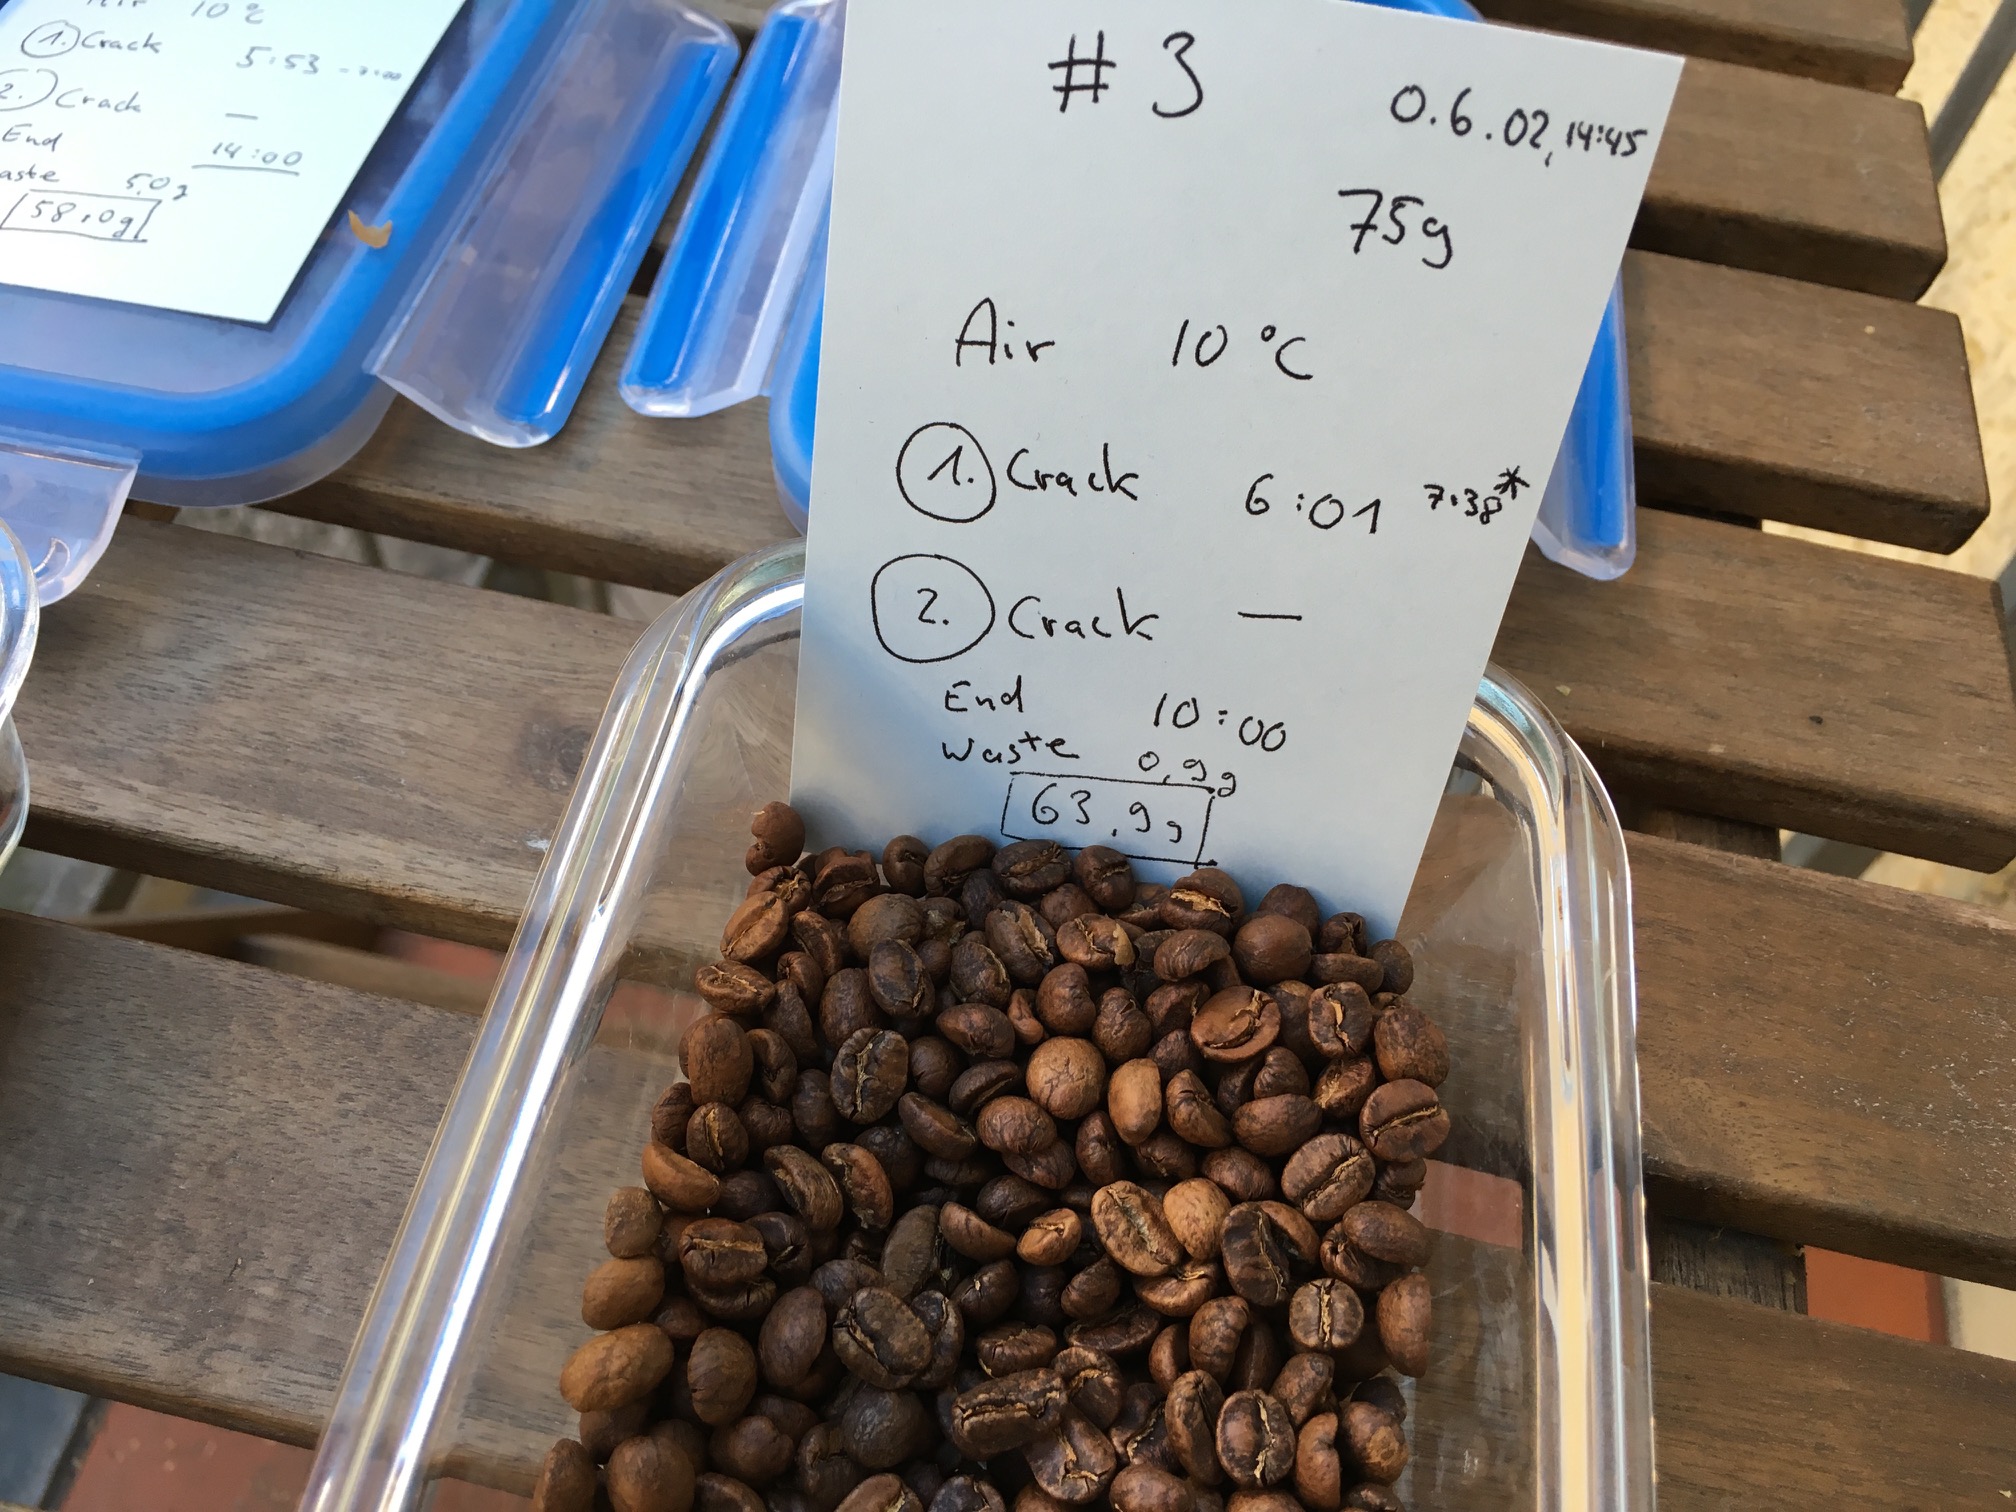 10°C
1. Crack 5:53 - 7:00
2. Crack —
End 14:00
aste 5,0g
58,0g
# 3 0.6.02, 14:45
75g
Air 10 °C
1. Crack 6:01 7:38*
2. Crack —
End 10:00
Waste 0,9g
63,9g